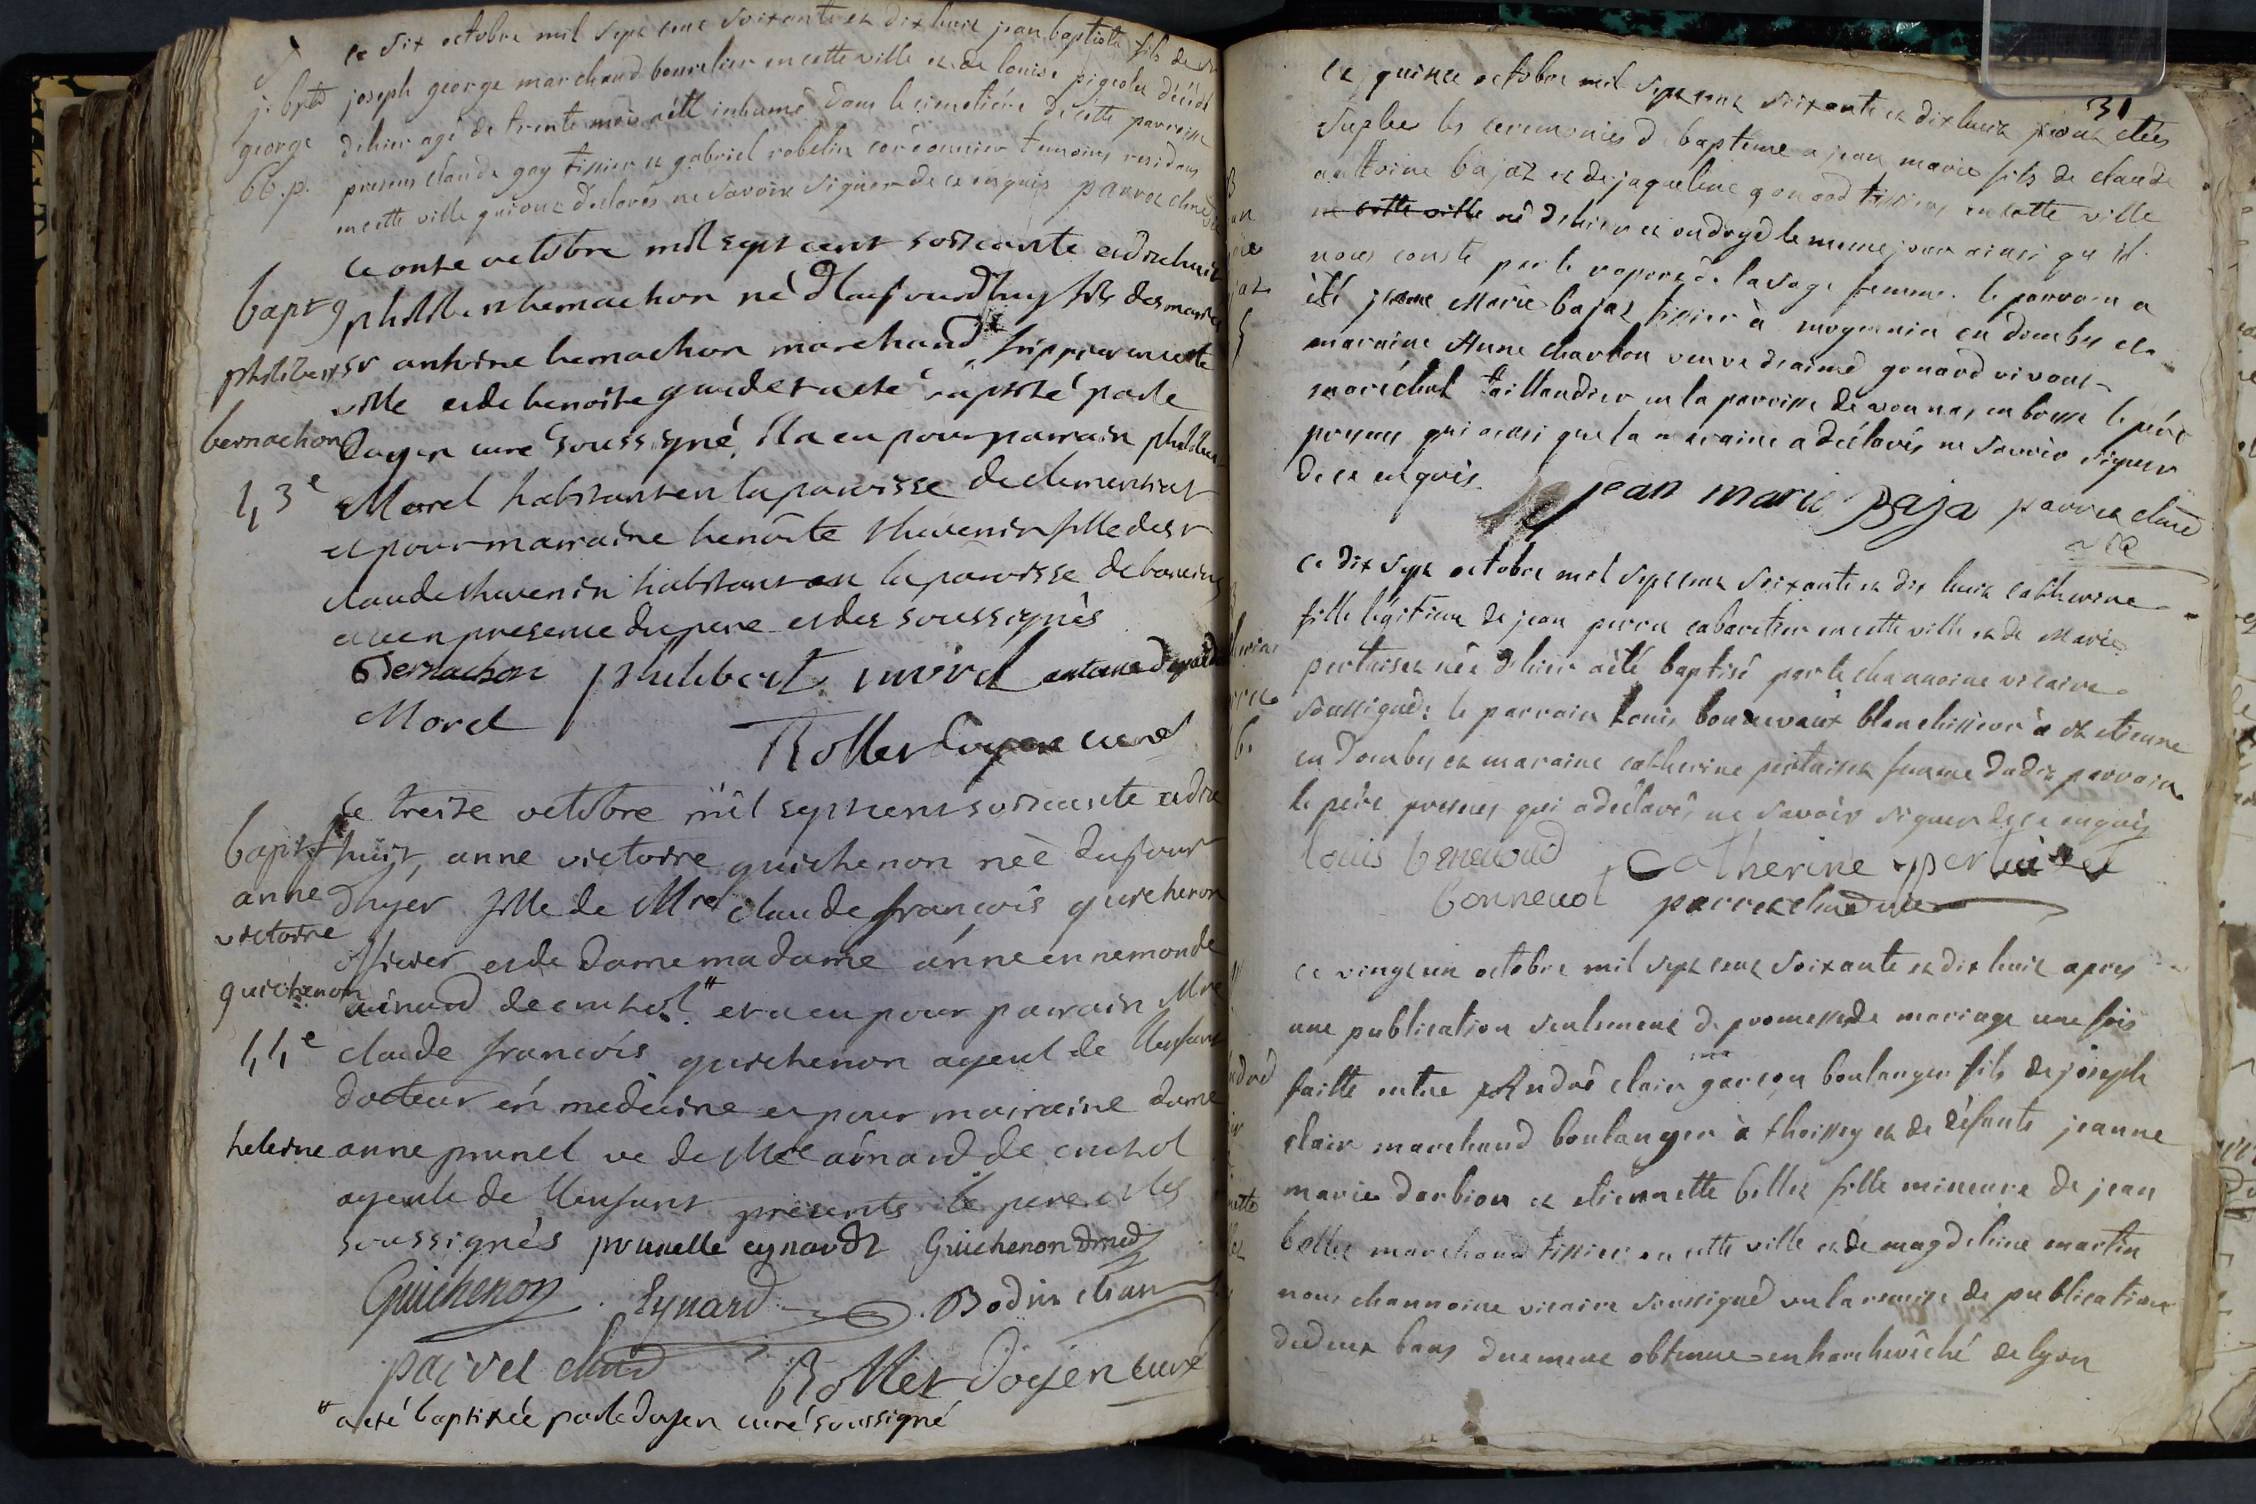 ce six octobre mil sept cent soixante et dix huit jean baptiste fils de Sr
j. bpte joseph george marchand bourelier en cette ville et de louise pigeolet décédé
george d'hier agé de trente mois a eté inhumé dans le cimetière de cette parroisse
66. p. presens claude gay tissier et gabriel robelin cordonnier temoins residens
en cette ville qui ont déclarés ne savoir signer de ce enquis parvet chne
Le onze octobre mil sept cent soixante et dix huit
bapt philibert bernachon né d'aujourdhuy fils des mariés
philibert sr antoine bernachon marchand frippier en cette
ville et de benoîte a eté baptisé par le
bernachon doyen curé soussigné, il a eu pour parrain philibert
1,3e Morel habitant en la paroisse de clementiat
et pour marraine benoîte thevenin fille de sr
claude thevenin habitant en la paroisse de baneins
en presence du pere et des soussignés
Bernachon philibert morel
Morel
Rollet doyen curé
Le treize octobre mil sept cent soixante et dix
bapt huit, anne victoire guichenon née du jour
anne d'hyer fille de Mre claude françois guichenon
victoire officier et de dame madame anne ennemonde
guichenon ainard de cuchol # et a eu pour parrain Mre
1,1,e claude françois guichenon ayeul de l'enfant
docteur en medecine et pour mairaine dame
heleine anne prunel ve de Mre ainard de cuchol
ayeule de l'enfant présents le pere et les
soussignés prunelle eynardt Guichenon Dmed
Guichenon Eynard Bodin chan
parvet chne Rollet doyen curé
# a eté baptisée par le doyen curé soussigné
31
Ce quinze octobre mil sept cent soixante et dix huit ont étés
suplées les ceremonies de bapteme a jean marie fils de claude
antoine bajat et de jaqueline gonard tissiers en cette ville
en cette ville né d'hier et ondoyé le meme jour ainsi qu'il
nous conste par le raport de la sage femme. le parrain a
été jean Marie bajat tissier à mogneneins en dombes et la
maraine Anne charbon veuve d'aimé gonard vivant
maréchal taillandier en la parroisse de vonnas en bresse le père
present qui ainsi que la maraine a déclarés ne savoir signer
de ce enquis
jean marie Baja parvet chne
vic
Ce dix sept octobre mil sept cent soixante et dix huit catherine
fille légitime de jean perra cabaretier en cette ville et de Marie
pertuiset née d'hier a été baptisé par le channoine vicaire
soussigné: le parrain Louis bonnevaux blanchisseur à st etienne
en dombes et maraine catherine pertuiset femme dudit parrain
le père present qui a déclaré ne savoir signer de ce enquis
louis beneuoud Catherine pertuiset
bonneuot parvet chne vic
ce vingt un octobre mil sept cent soixante et dix huit apres
une publication seulement de promesse de mariage une fois
faitte entre Sr André clair garçon boulanger fils de joseph
clair marchand boulanger à thoissey et de défunte jeanne
marie darbion et etiennette bellet fille mineure de jean
bellet marchand tissier en cette ville et de magdeleine martin
nous channoine vicaire soussigné vu la remise de publication
de deux bans duement obtenue en l'archevêché de lyon